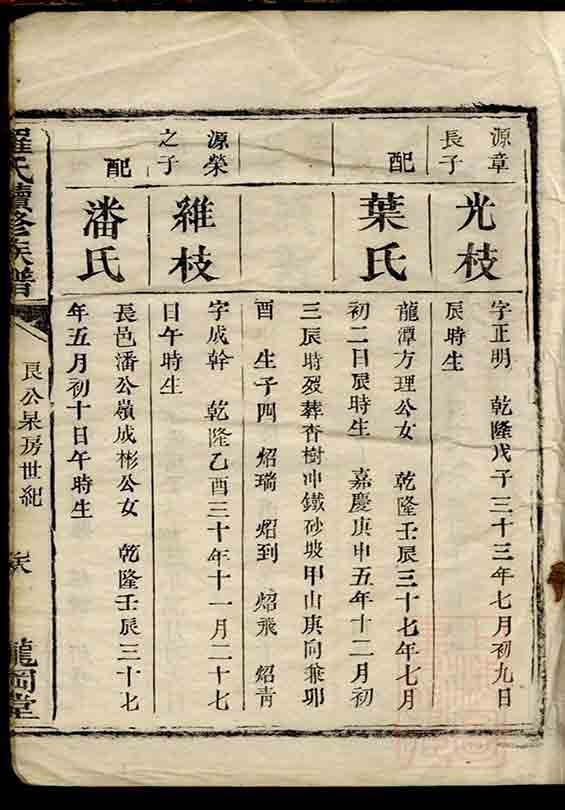 源章
長子
光枝
字正明　乾隆戊子三十三年七月初九日
辰時生
配
葉氏
龍潭方理公女　乾隆壬辰三十七年七月
初二日辰時生　嘉慶庚申五年十二月初
三辰時歿葬杏樹冲鐵砂坡甲山庚向兼卯
酉　生子四　炤瑞　炤到　炤飛　炤青
源榮
之子
維枝
字成幹　乾隆乙酉三十年十一月二十七
日午時生
配
潘氏
長邑潘公嶺成彬公女　乾隆壬辰三十七
年五月初十日午時生
羅氏續修族譜
良公杲房世紀
龍岡堂